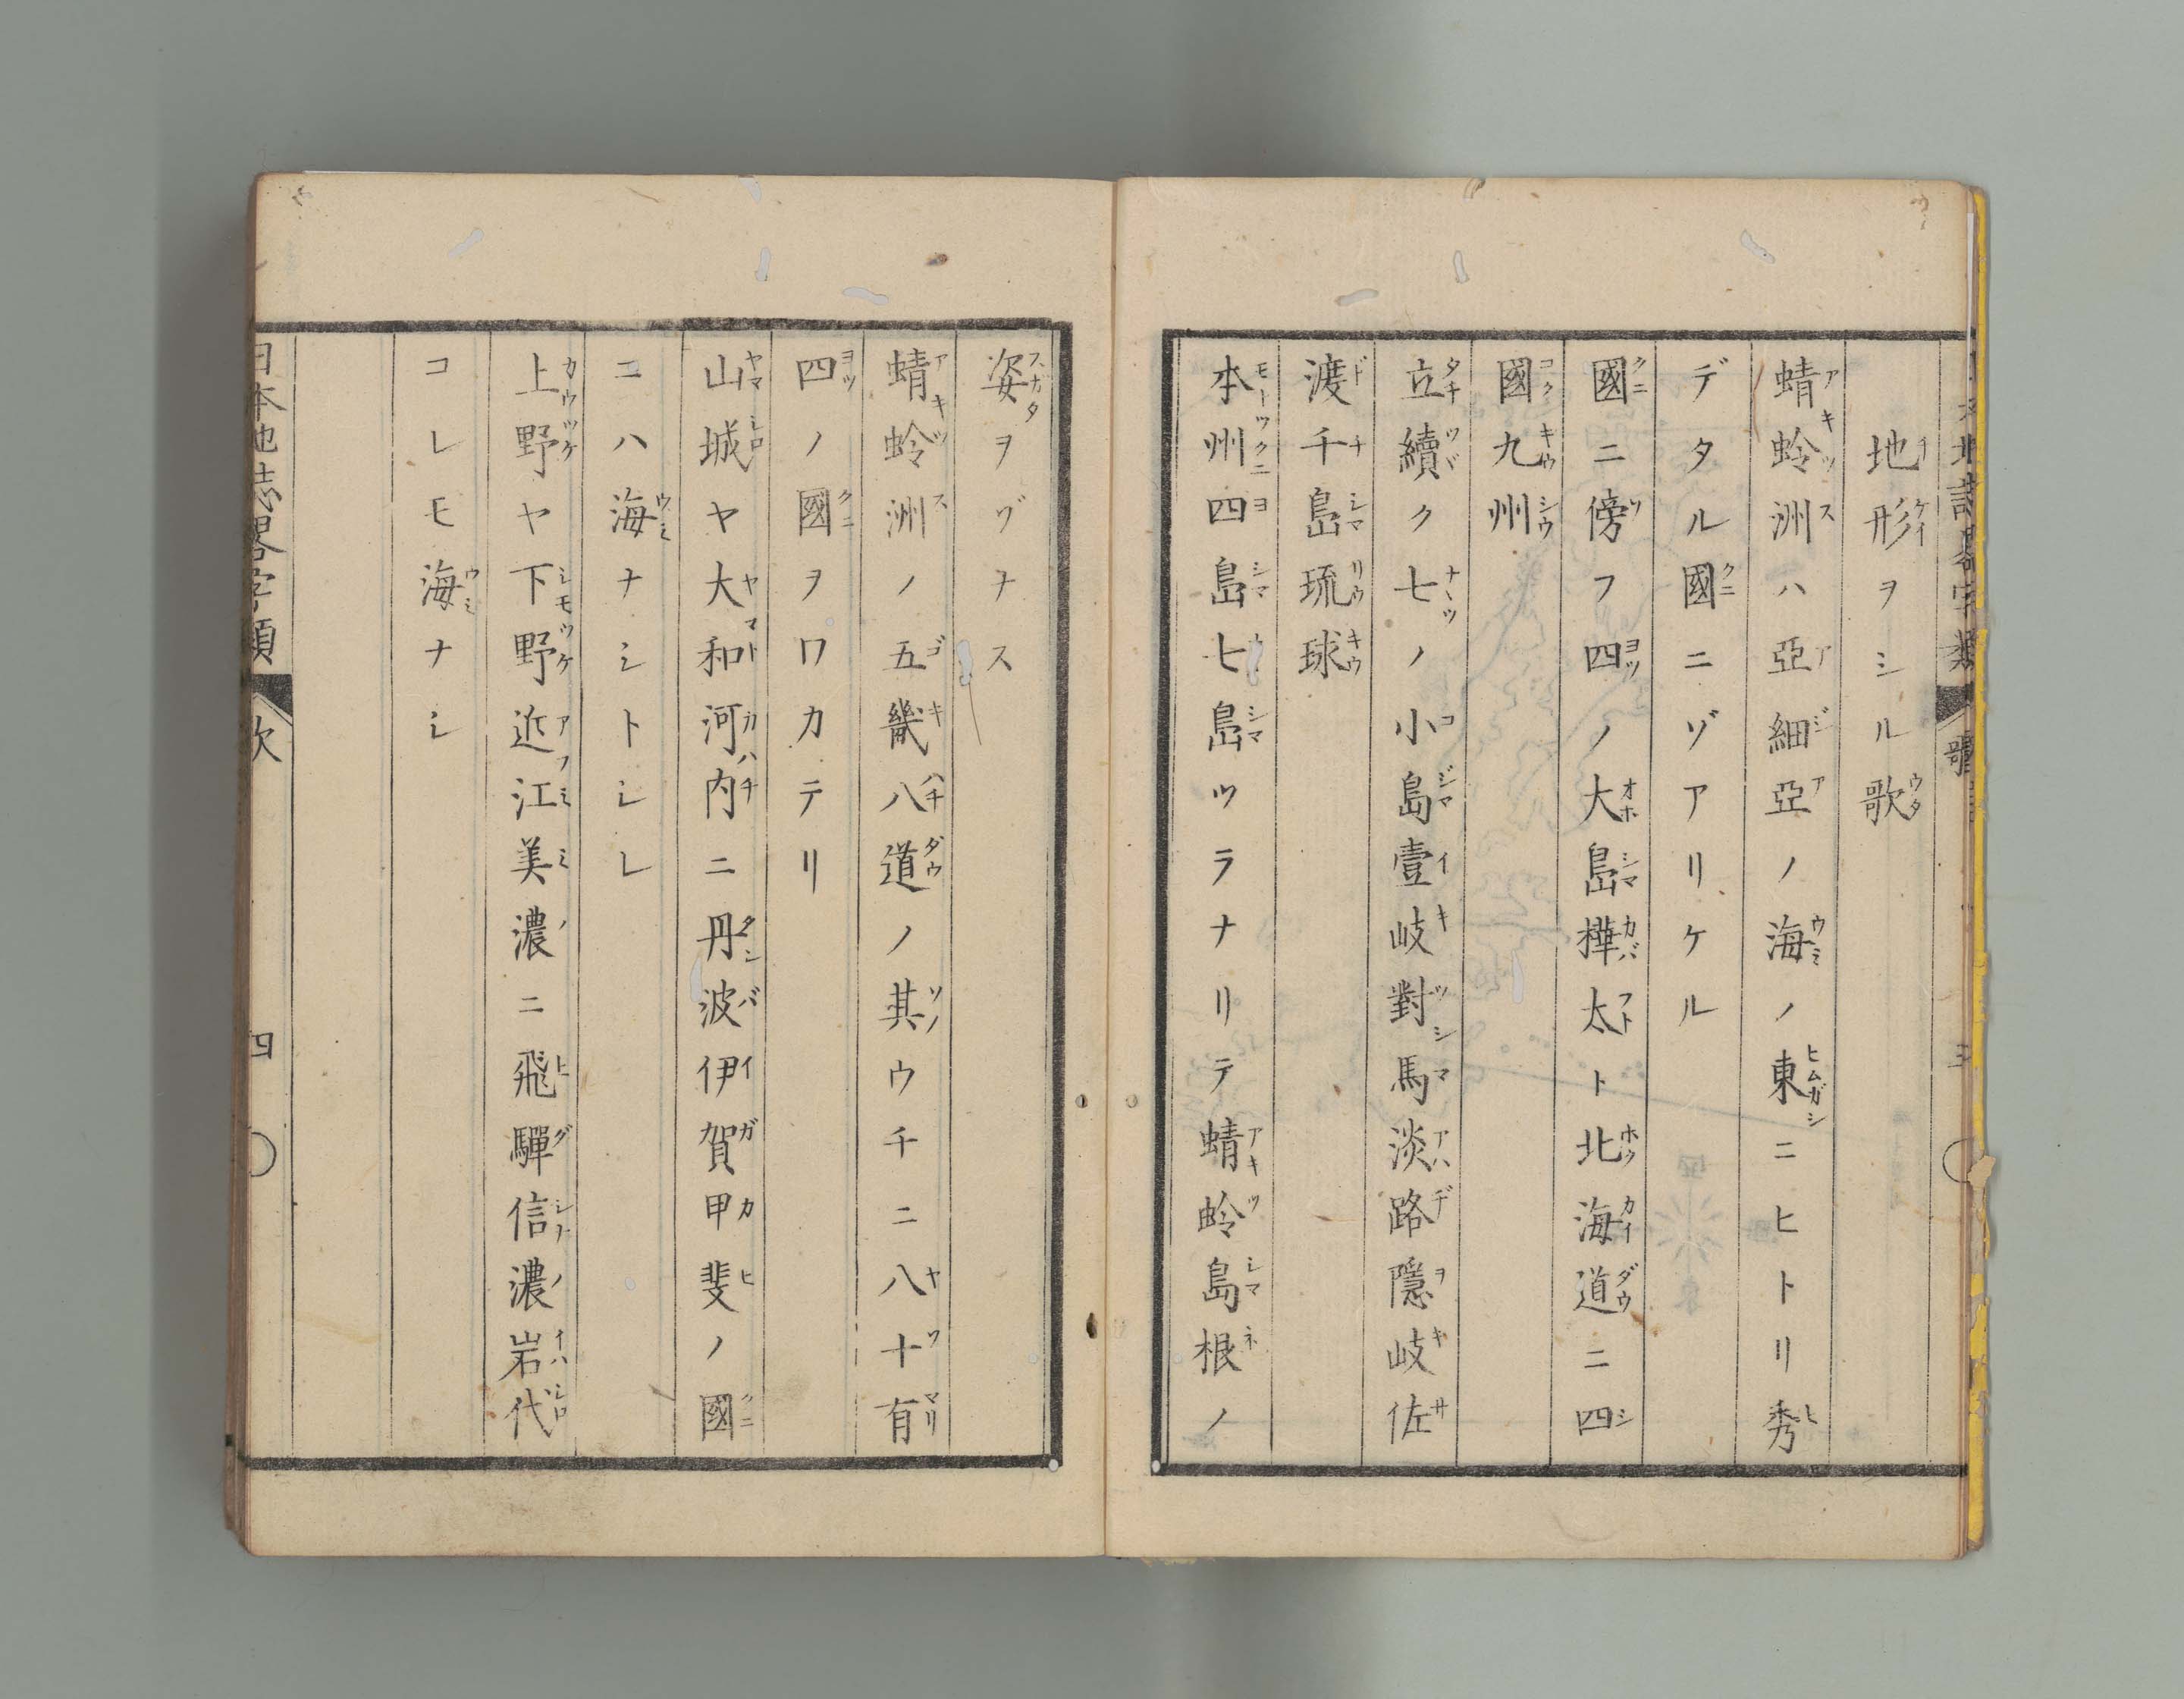 地形ヲシル歌
蜻蛉洲ハ亞細亞ノ海ノ東ニヒトリ秀
デタル國ニゾアリケル
國ニ傍フ四ノ大島樺太ト北海道ニ四
國九州
立續ク七ノ小島壹岐對馬淡路隱岐佐
渡千島琉球
本州四島七島ツラナリテ蜻蛉島根ノ
姿ヲゾナス
蜻蛉洲ノ五畿八道ノ其ウチニ八十有
四ノ國ヲワカテリ
山城ヤ大和河内ニ丹波伊賀甲斐ノ國
ニハ海ナシトシレ
上野ヤ下野近江美濃ニ飛驒信濃岩代
コレモ海ナシ
日本地誌畧字類
四